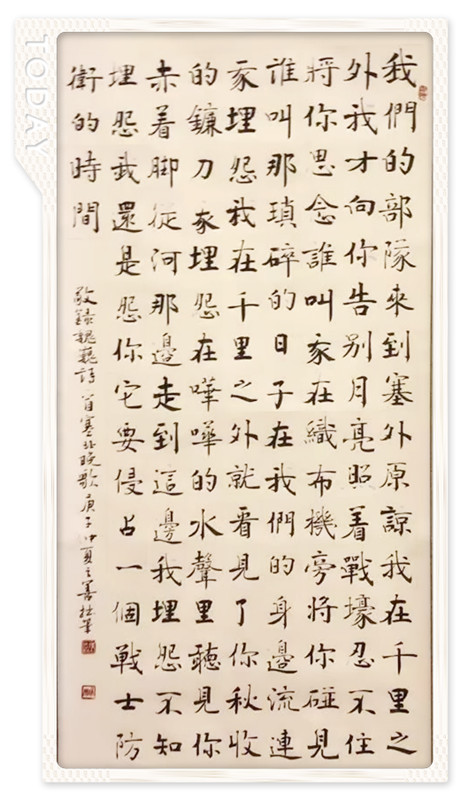 我們的部隊來到塞外原諒我在千里之
外我才向你告别月亮照着戰壕忍不住
將你思念誰叫家在織布機旁將你碰見
誰叫那瑣碎的日子在我們的身邊流連
家埋怨我在千里之外就看見了你秋收
的鐮刀家埋怨在嘩嘩的水聲里聽見你
赤着脚從河那邊走到這邊我埋怨不知
埋怨我還是怨你它要侵占一個戰士防
衛的時間
敬録魏巍詩一首塞北晚歌庚子仲夏之善
TODAY